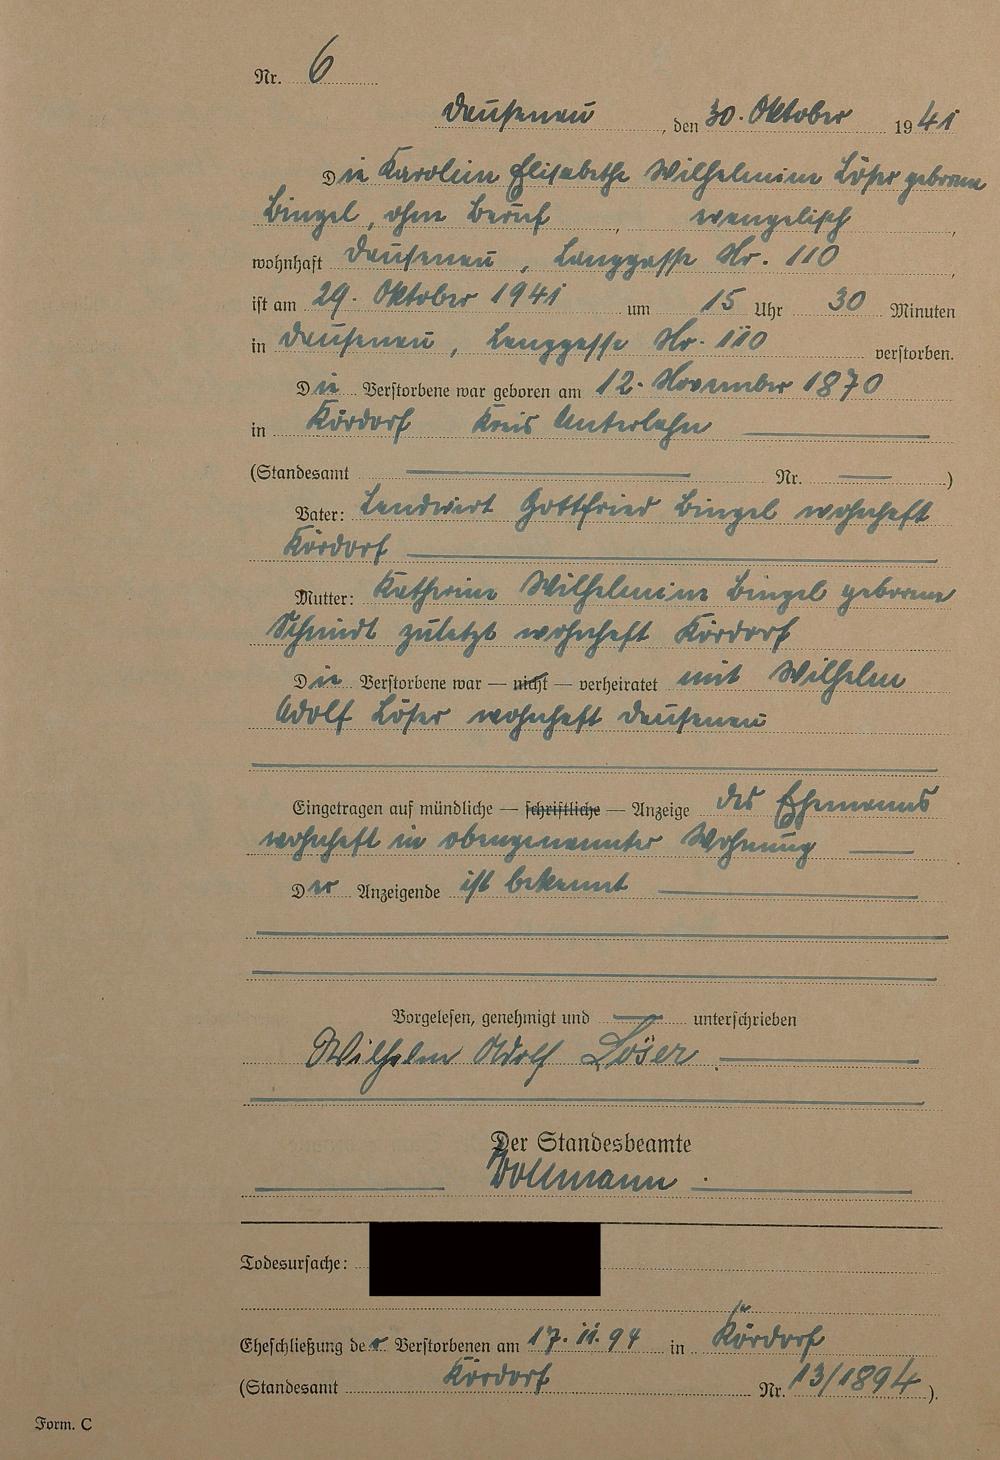 Nr. 6
Dausenau, den 30. Oktober 1941
Die Karoline Elisabethe Wilhelmine Löser geborene
Bingel, ohne Beruf, evangelisch,
wohnhaft Dausenau, Langgasse Nr. 110,
ist am 29. Oktober 1941 um 15 Uhr 30 Minuten
in Dausenau, Langgasse Nr. 110 verstorben.
Die Verstorbene war geboren am 12. November 1870
in Kördorf Kreis Unterlahn
(Standesamt Nr. )
Vater: Landwirt Gottfried Bingel wohnhaft
Kördorf
Mutter: Katharine Wilhelmine Bingel geborene
Schmidt zuletzt wohnhaft Kördorf
Die Verstorbene war — nicht — verheiratet mit Wilhelm
Adolf Löser wohnhaft Dausenau
Eingetragen auf mündliche — schriftliche — Anzeige des Ehemanns
wohnhaft in obengenannter Wohnung
Der Anzeigende ist bekannt
Vorgelesen, genehmigt und unterschrieben
Wilhelm Adolf Löser
Der Standesbeamte
Vollmann
Todesursache:
Eheschließung der Verstorbenen am 17.11.94 in Kördorf
(Standesamt Kördorf Nr. 13/1894).
Form. C